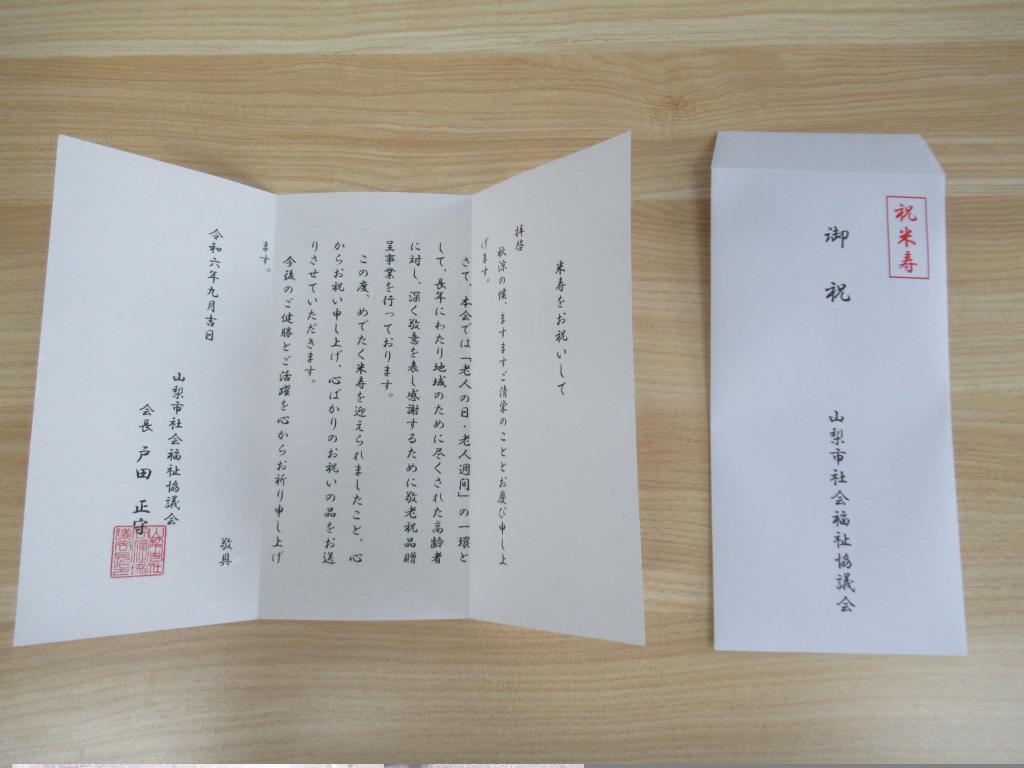 米寿をお祝いして
拝啓
秋涼の候、ますますご清栄のこととお慶び申し上
げます。
さて、本会では「老人の日・老人週間」の一環と
して、長年にわたり地域のために尽くされた高齢者
に対し、深く敬意を表し感謝するために敬老祝品贈
呈事業を行っております。
この度、めでたく米寿を迎えられましたこと、心
からお祝い申し上げ、心ばかりのお祝いの品をお送
りさせていただきます。
今後のご健勝とご活躍を心からお祈り申し上げ
ます。
敬具
令和六年九月吉日
山梨市社会福祉協議会
会長 戸田 正守
祝米寿
御祝
山梨市社会福祉協議会